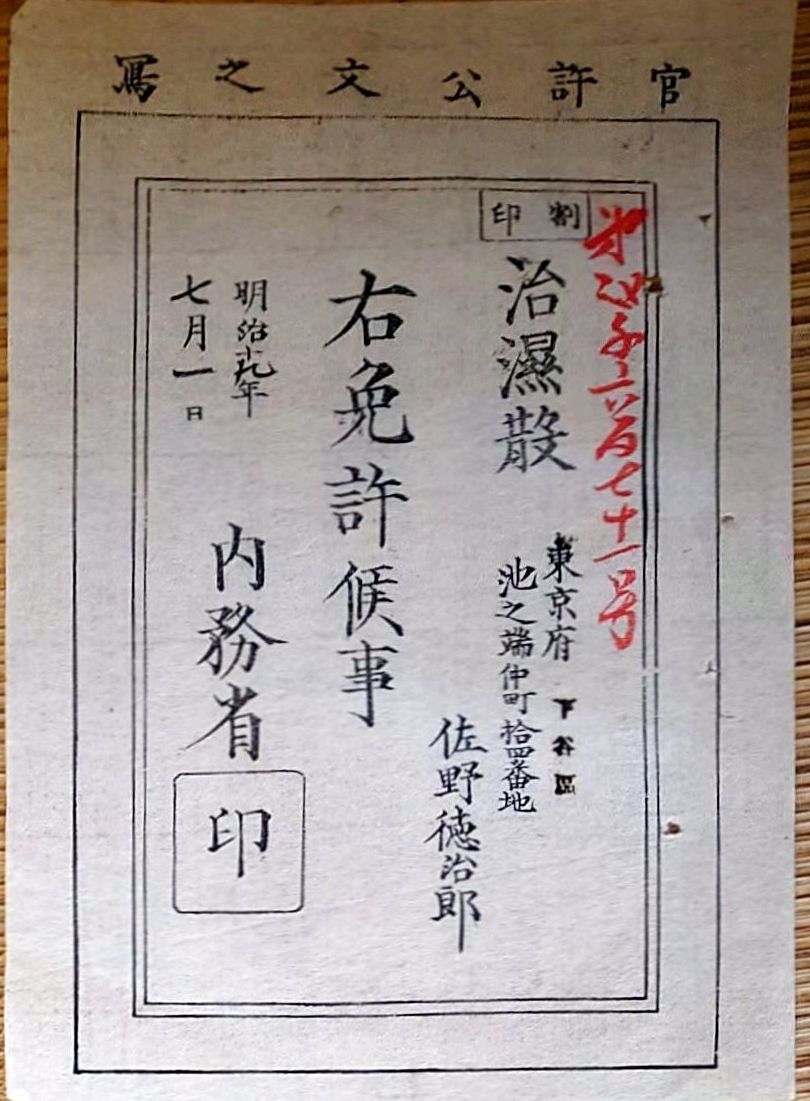 官許公文之寫
第四千六百七十一号
割印
治濕散
東京府 下谷區
池之端仲町拾四番地
佐野徳治郎
右免許候事
明治十九年
七月一日
内務省
印